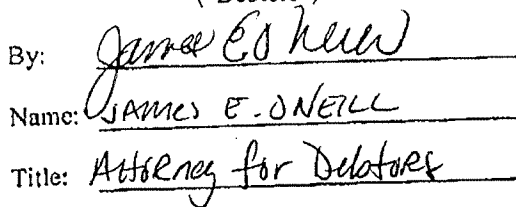 By: James E O'Neill
Name: JAMES E. ONEILL
Title: Attorney for Debtors